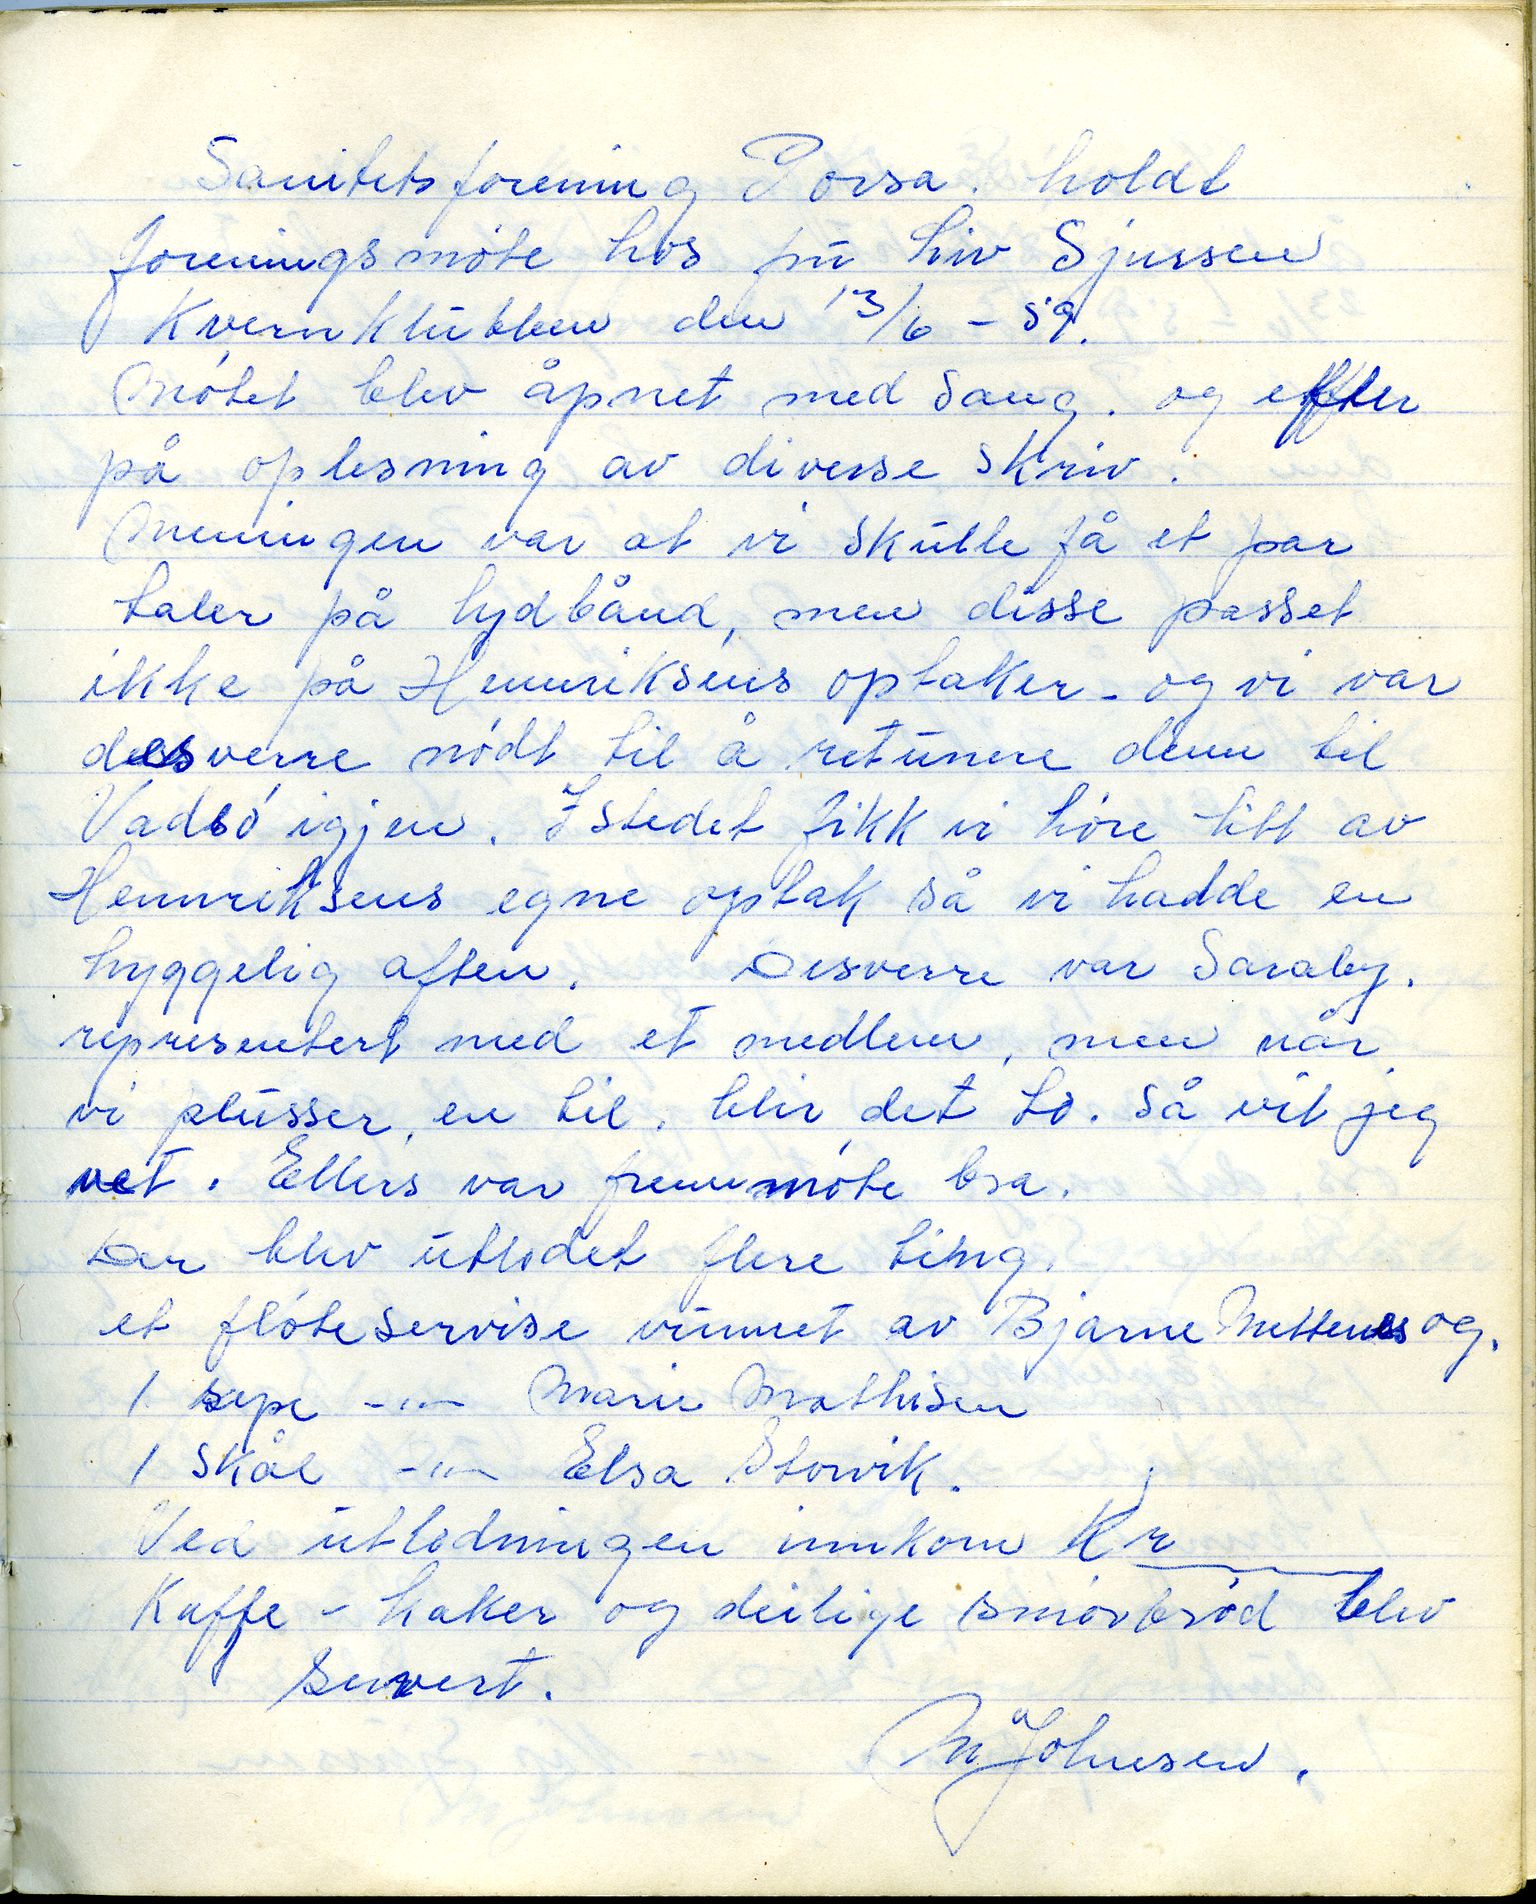 Sanitetsforening Porsa. holdt
foreningsmöte hos frü Liv Sjursen
Kvernklübben den 13/6 - 59.
Mötet blev åpnet med sang. og efter
på oplesning av diverse skriv.
Meningen var at vi skülle få et par
taler på lydbånd, men disse passet
ikke på Hennriksens optaker - og vi var
desverre nödt til å retünere denn til
Vadsö igjen. Istedet fikk vi höre litt av
Hennriksens egne optak så vi hadde en
hyggelig aften. Desverre var Saraby.
representert med et medlem, men når
vi plüsser en til, blir det to. Så vit jeg
vet. Ellers var fremmöte bra.
Der blev ütlodet flere ting.
et flöteservise vünnet av Bjarne og.
1 sepe -"- Marie Mathisen
1 Skål -"- Elsa Storvik.
Ved ütlodningen innkom Kr
Kaffe - kaker og deilige smörbröd blev
servert.
M Johnesen.